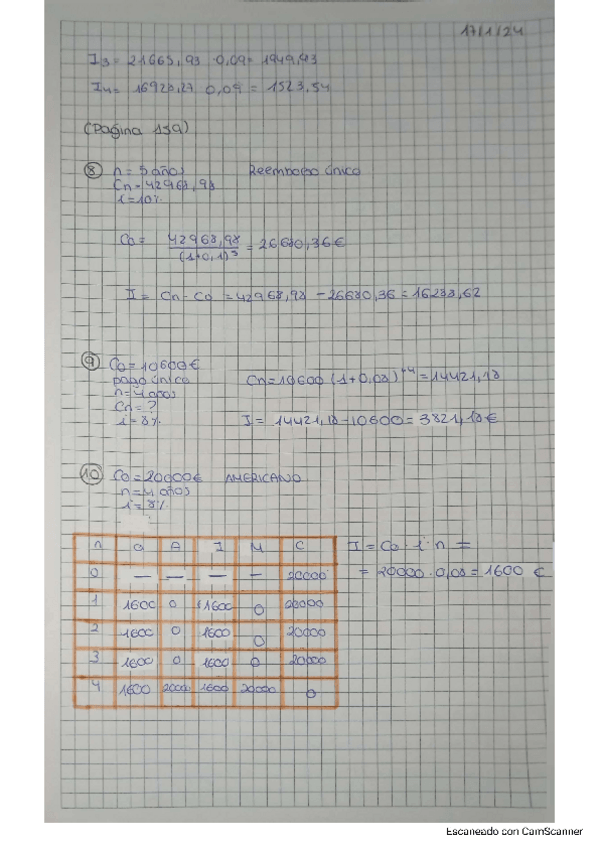 17/1/24
I3 = 21663,93 · 0,09 = 1949,93
I4 = 16928,27 0,09 = 1523,54
(Pagina 159)
8 n = 5 años Reembolso único
Cn = 42968,98
i = 10%
Co = 42968,98 / (1+0,1)^5 = 26680,36 €
I = Cn - Co = 42968,98 - 26680,36 = 16288,62
9 Co = 10600 €
pago único Cn = 10600 (1+0,08)^4 = 14421,18
n = 4 años
Cn = ?
i = 8% I = 14421,18 - 10600 = 3821,18 €
10 Co = 20000 € AMERICANO
n = 4 años
i = 8%
n a A I M C I = Co · i · n =
0 — — — — 20000 = 20000 · 0,08 = 1600 €
1 1600 0 1600 0 20000
2 1600 0 1600 0 20000
3 1600 0 1600 0 20000
4 1600 2000 1600 20000 0
Escaneado con CamScanner